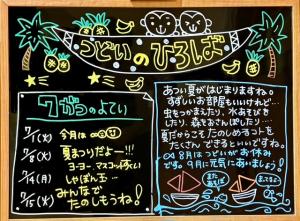 つどいのひろば
7がつのよてい
7/1(火) 今月は
7/8(火) 夏まつりだよー!!!
ヨーヨー、マスコットづくり
7/14(月) しゃぼん玉...
みんなで
たのしもうね!
あつい夏がはじまりますね。
すずしいお部屋もいいけれど…
虫をつかまえたり、水あそびを
したり、森をおさんぽしたり…
夏だからこそたのしめるコトを
たくさんできるといいですね。
8月はつどいがお休み
です。9月に元気にあいましょう!
また
あそぼ